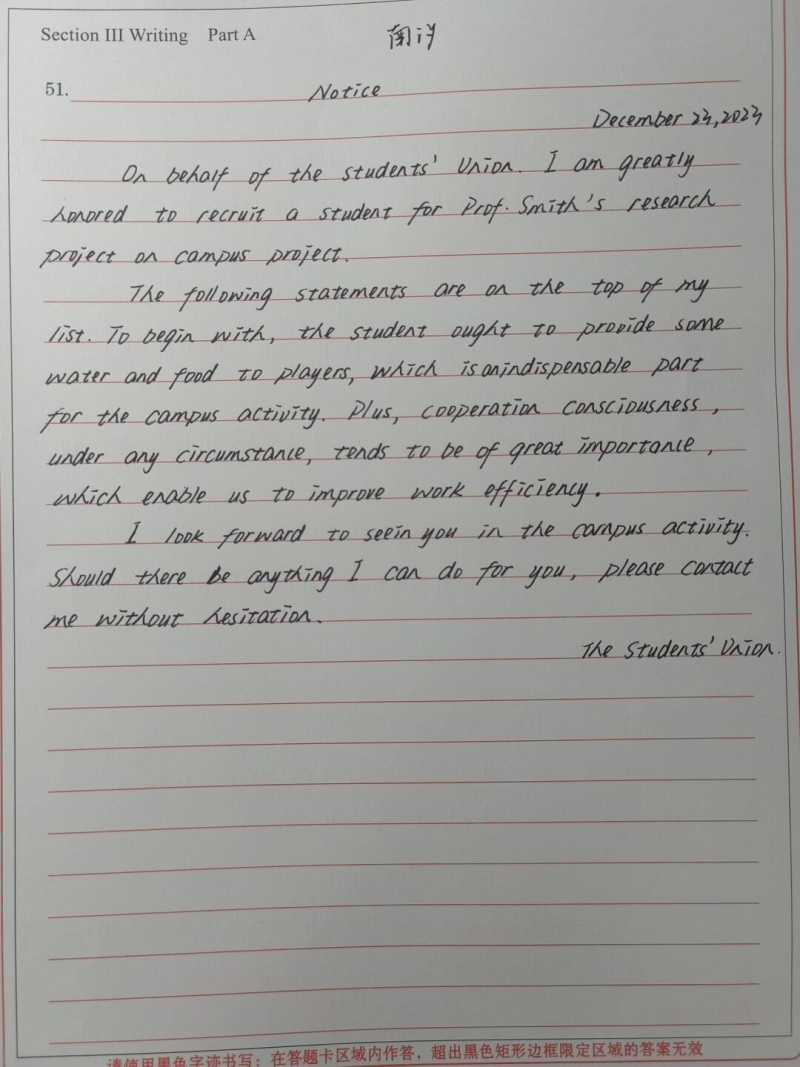 Section III Writing Part A
51. Notice
December 23, 2023
On behalf of the students' Union. I am greatly
honored to recruit a student for Prof. Smith's research
project on campus project.
The following statements are on the top of my
list. To begin with, the student ought to provide some
water and food to players, which is an indispensable part
for the campus activity. Plus, cooperation consciousness,
under any circumstance, tends to be of great importance,
which enable us to improve work efficiency.
I look forward to seein you in the campus activity.
Should there be anything I can do for you, please contact
me without hesitation.
The Students' Union.
请使用黑色字迹书写；在答题卡区域内作答，超出黑色矩形边框限定区域的答案无效